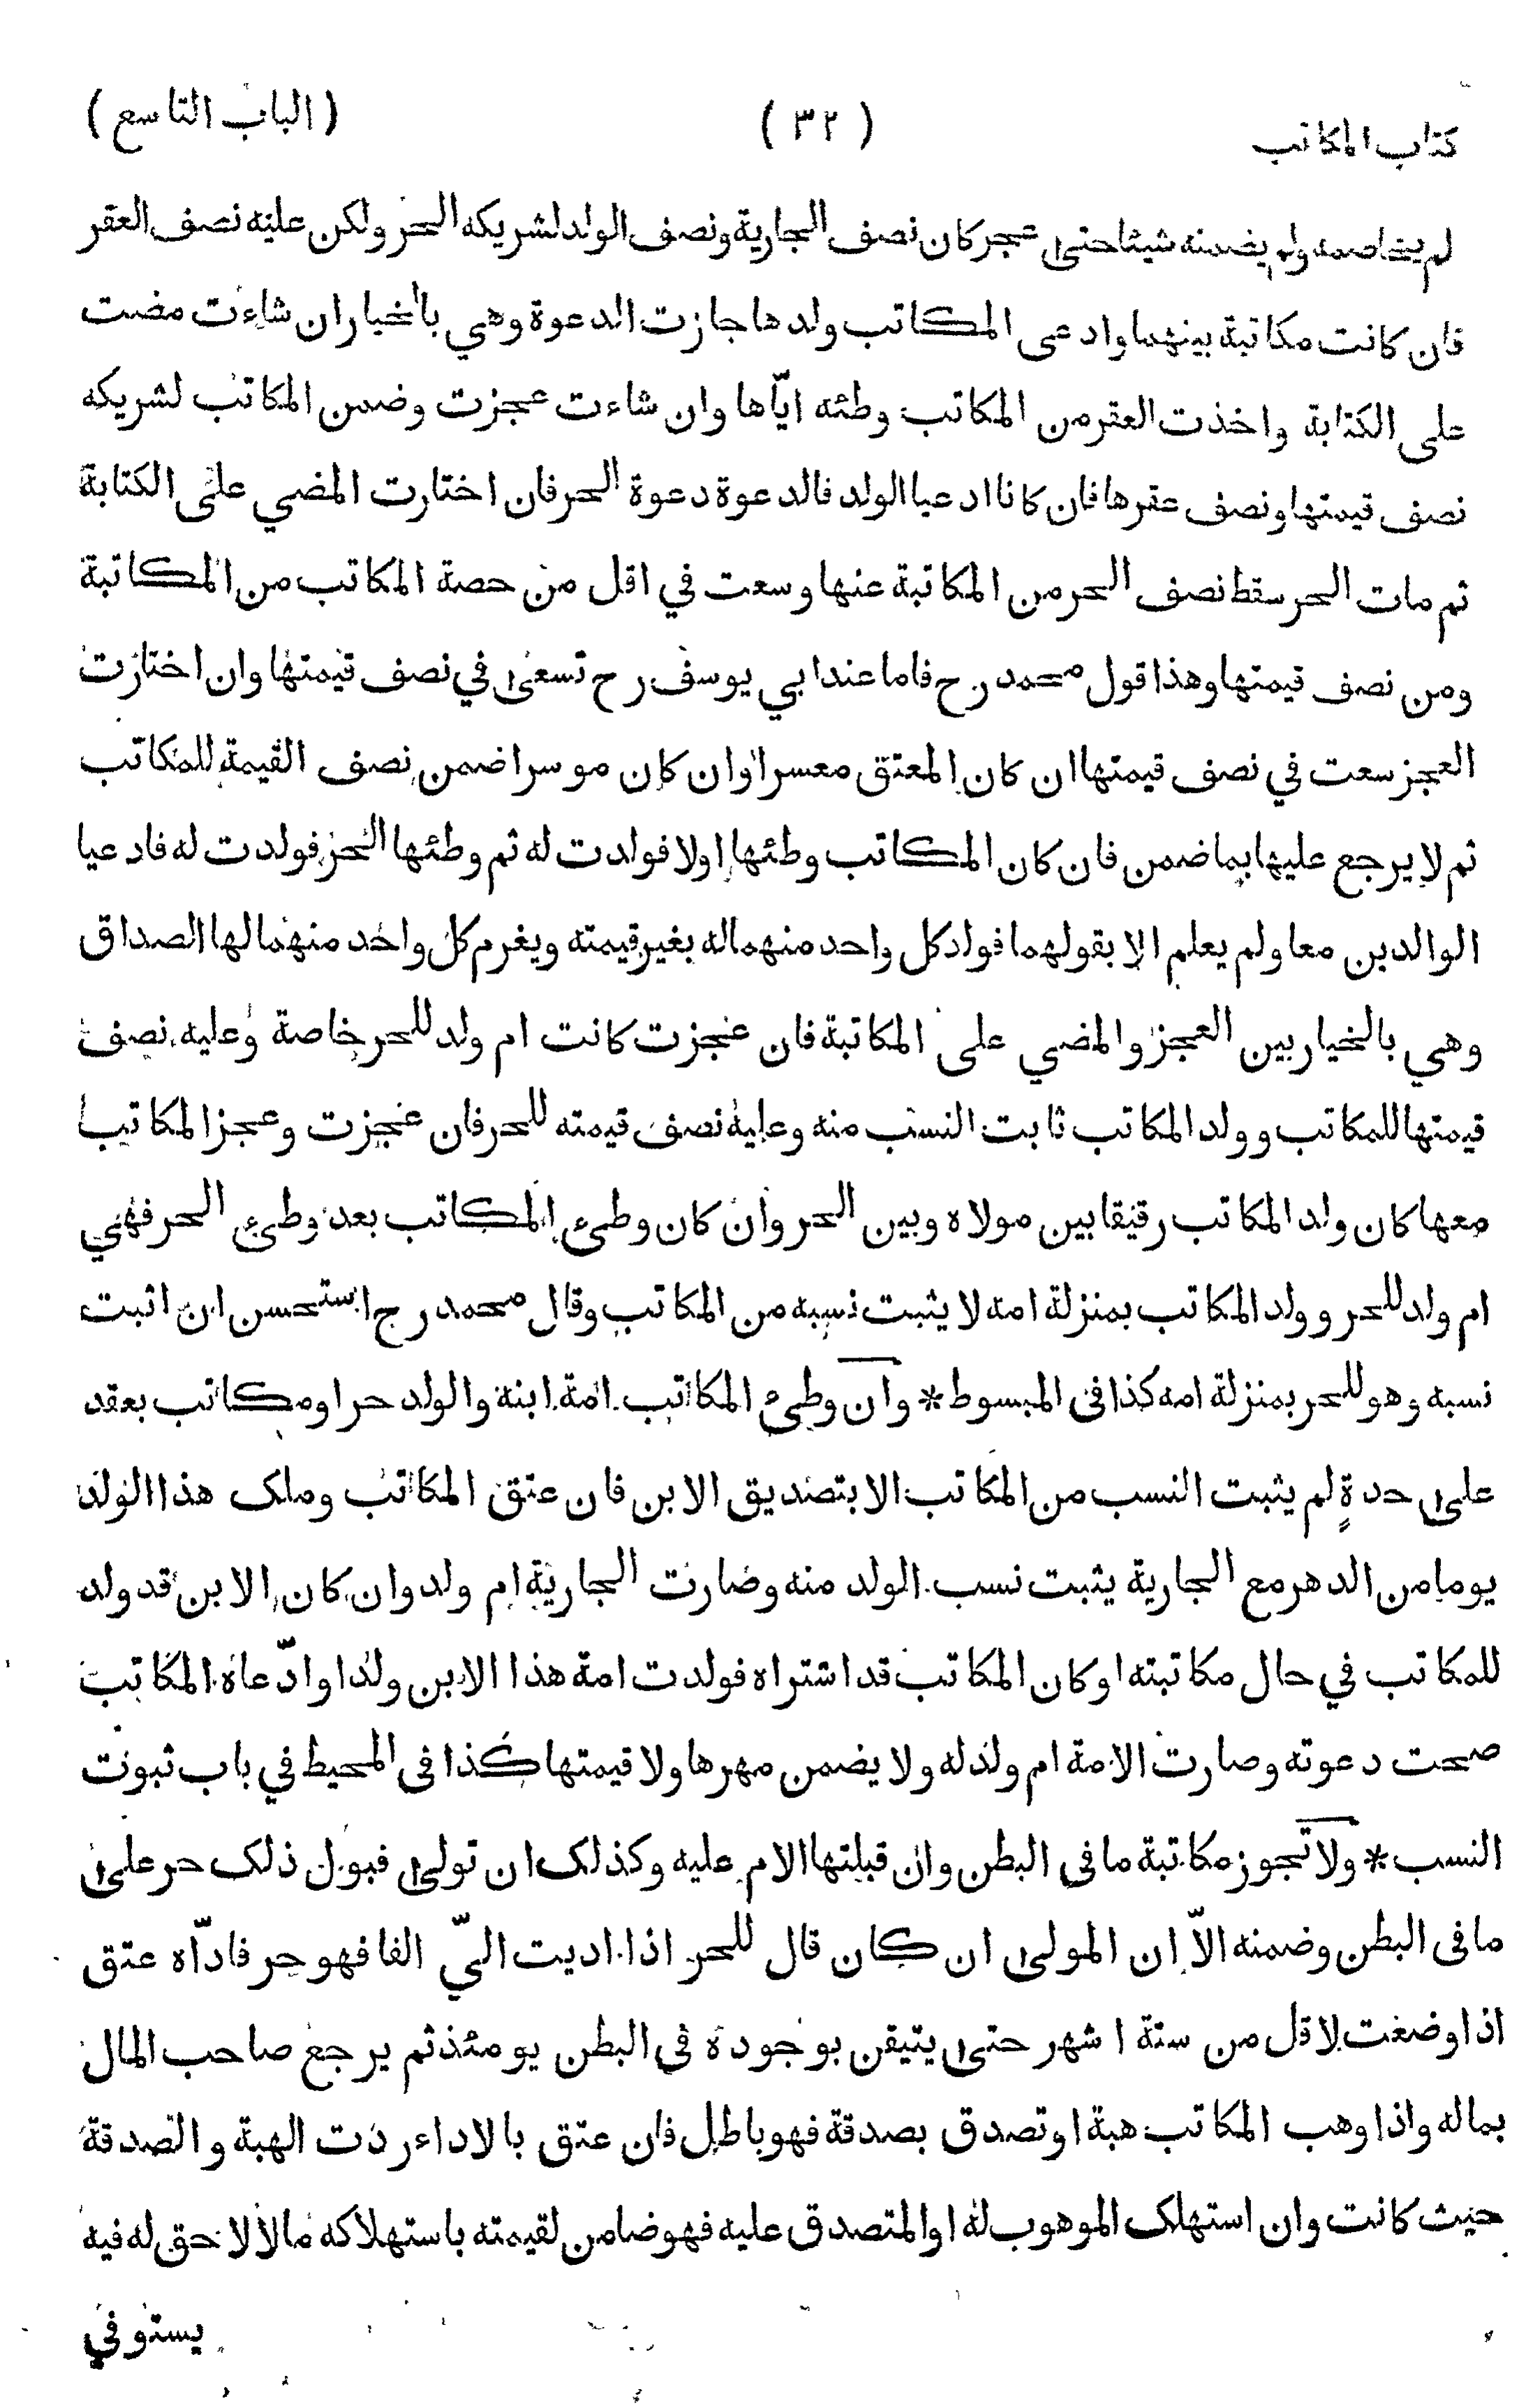 كتاب المكاتب
( ٣٢ )
( الباب التاسع )
لم يخاصمه ولم يضمنه شيئا حتى عجز كان نصف الجارية ونصف الولد لشريكه الحر ولكن عليه نصف العقر
فان كانت مكاتبة بينهما وادعى المكاتب ولدها جازت الدعوة وهي بالخيار ان شاءت مضت
على الكتابة واخذت العقر من المكاتب وطئه ايّاها وان شاءت عجزت وضمن المكاتب لشريكه
نصف قيمتها ونصف عقرها فان كانا ادعيا الولد فالدعوة دعوة الحر فان اختارت المضي على الكتابة
ثم مات الحر سقط نصف الحر من المكاتبة عنها وسعت في اقل من حصة المكاتب من المكاتبة
ومن نصف قيمتها وهذا قول محمد رح فاما عند ابي يوسف رح تسعى في نصف قيمتها وان اختارت
العجز سعت في نصف قيمتها ان كان المعتق معسرا وان كان موسرا ضمن نصف القيمة للمكاتب
ثم لا يرجع عليها بما ضمن فان كان المكاتب وطئها اولا فولدت له ثم وطئها الحر فولدت له فادعيا
الوالدين معا ولم يعلم الا بقولهما فولد كل واحد منهما له بغير قيمته ويغرم كل واحد منهما لها الصداق
وهي بالخيار بين العجز والمضي على المكاتبة فان عجزت كانت ام ولد للحر خاصة وعليه نصف
قيمتها للمكاتب وولد المكاتب ثابت النسب منه وعليه نصف قيمته للحر فان عجزت وعجز المكاتب
معها كان ولد المكاتب رقيقا بين مولاه وبين الحر وان كان وطئ المكاتب بعد وطئ الحر فهي
ام ولد للحر وولد المكاتب بمنزلة امه لا يثبت نسبه من المكاتب وقال محمد رح استحسن ان اثبت
نسبه وهو للحر بمنزلة امه كذا فى المبسوط * وان وطئ المكاتب امة ابنه والولد حر او مكاتب بعقد
على حدةٍ لم يثبت النسب من المكاتب الا بتصديق الابن فان عتق المكاتب وملك هذا الولد
يوما من الدهر مع الجارية يثبت نسب الولد منه وصارت الجارية ام ولد وان كان الابن قد ولد
للمكاتب في حال مكاتبته او كان المكاتب قد اشتراه فولدت امة هذا الابن ولدا وادّعاه المكاتب
صحت دعوته وصارت الامة ام ولد له ولا يضمن مهرها ولا قيمتها كذا فى المحيط في باب ثبوت
النسب * ولا تجوز مكاتبة ما فى البطن وان قبلتها الام عليه وكذلك ان تولى قبول ذلك حر على
ما فى البطن وضمنه الاّ ان المولى ان كان قال للحر اذا اديت اليّ الفا فهو حر فادّاه عتق
اذا وضعت لاقل من ستة اشهر حتى يتيقن بوجوده في البطن يومئذ ثم يرجع صاحب المال
بماله واذا وهب المكاتب هبة او تصدق بصدقة فهو باطل فان عتق بالاداء ردت الهبة والصدقة
حيث كانت وان استهلك الموهوب له او المتصدق عليه فهو ضامن لقيمته باستهلاكه مالا لا حق له فيه
يستوفي